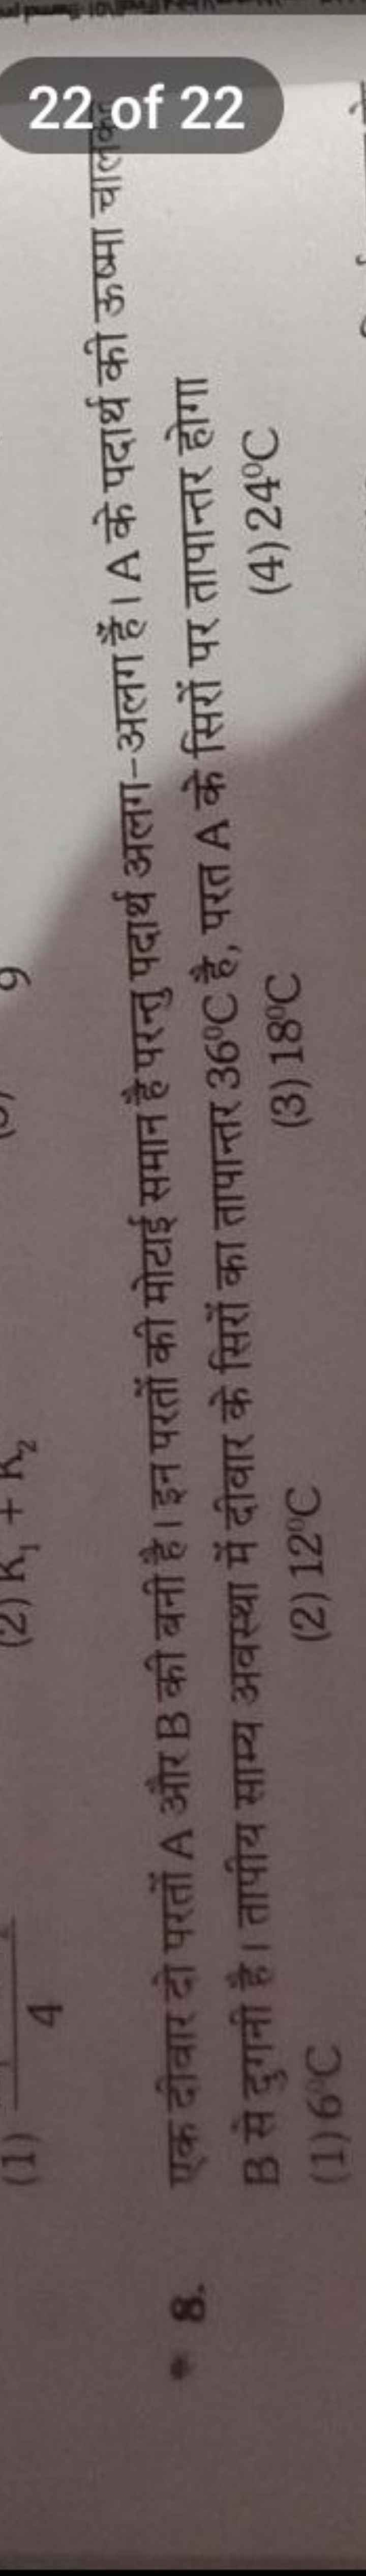 22 of 22
(1) 4 (2) K₁ + K₂ 9
* 8. एक दीवार दो परतों A और B की बनी है। इन परतों की मोटाई समान है परन्तु पदार्थ अलग-अलग हैं। A के पदार्थ की ऊष्मा
B से दुगनी है। तापीय साम्य अवस्था में दीवार के सिरों का तापान्तर 36⁰C है, परत A के सिरों पर तापान्तर होगा
(1) 6⁰C (2) 12⁰C (3) 18⁰C (4) 24⁰C